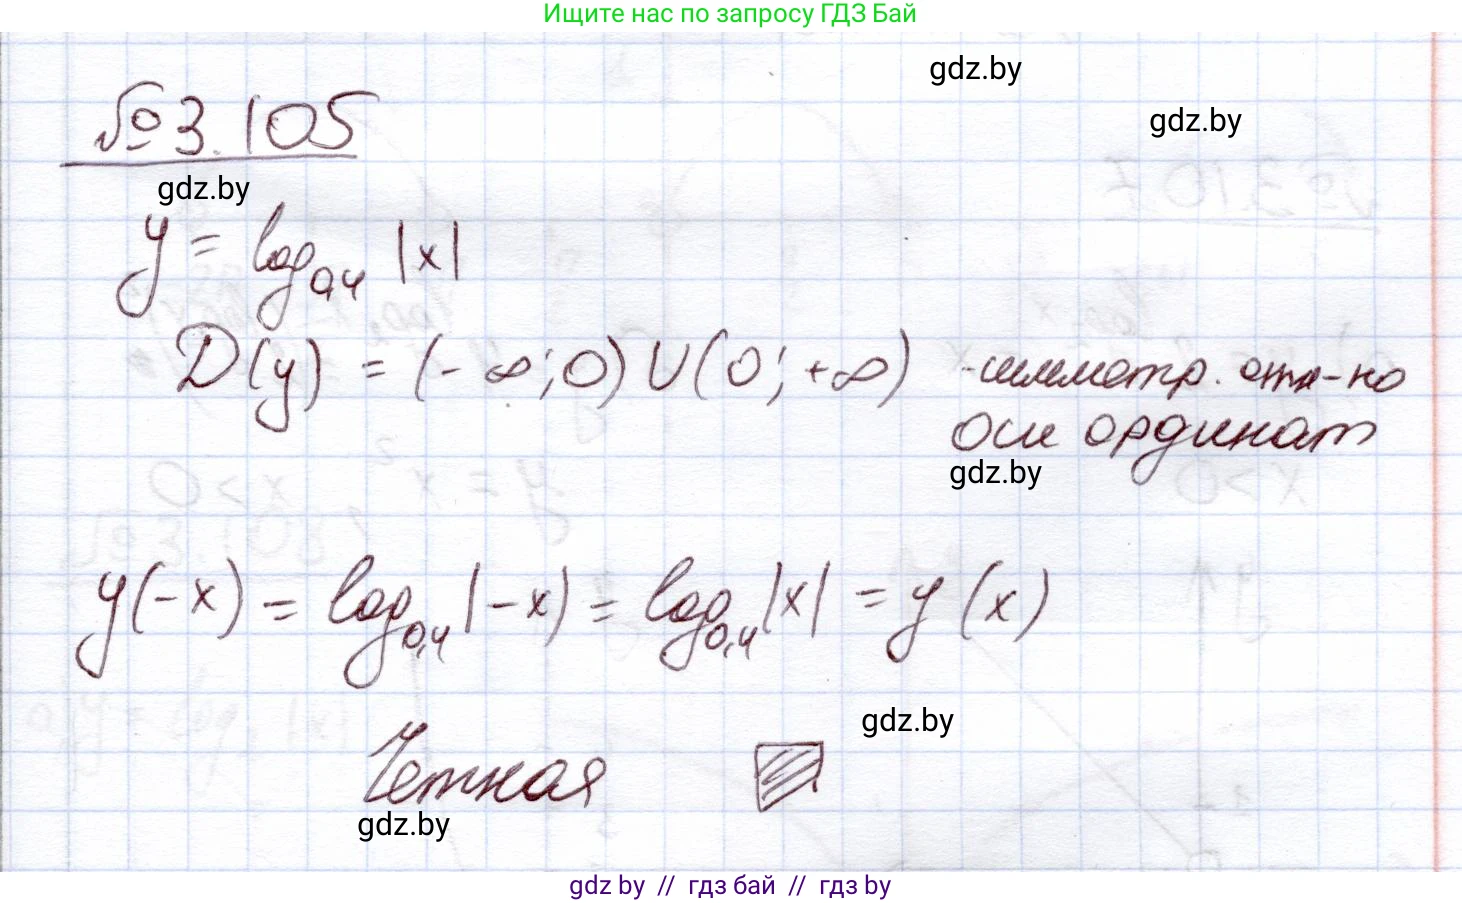 Ищите нас по запросу ГДЗ Бай
gdz.by
gdz.by
№3.105
gdz.by
y = log₀,₄ |x|
D(y) = (-∞;0) U (0;+∞) -симметр. отн-но
оси ординат
gdz.by
y(-x) = log₀,₄ |-x| = log₀,₄ |x| = y(x)
gdz.by
Четная
gdz.by
gdz by // гдз бай // гдз by